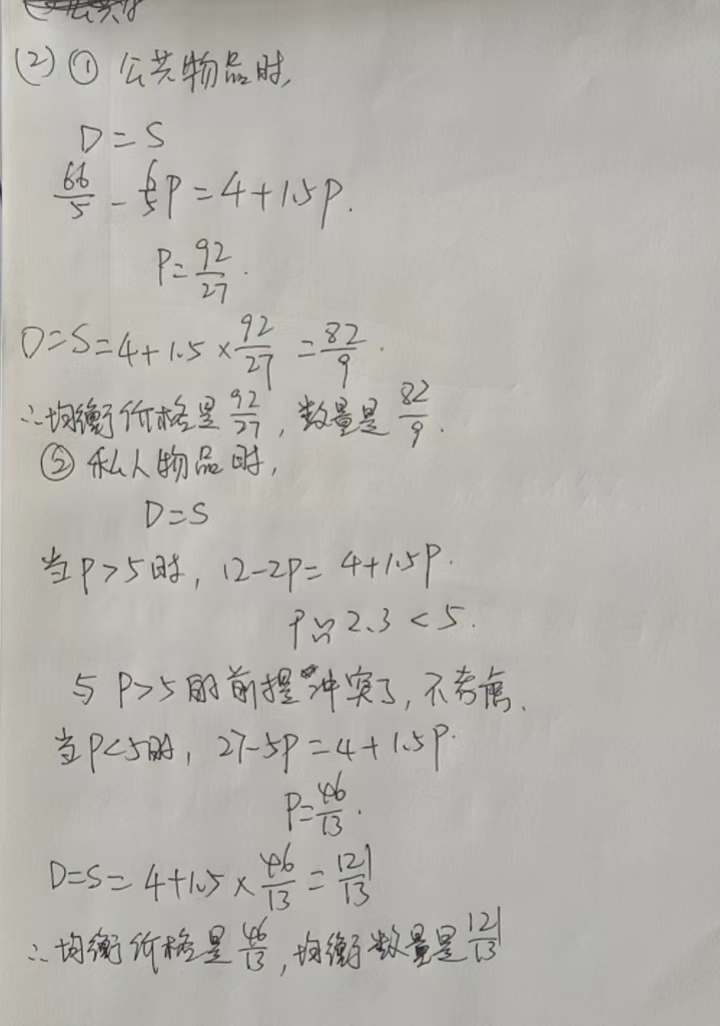 (2) ① 公共物品时,
D=S
66/5 - 6/5P = 4+1.5P.
P=92/27.
D=S=4+1.5×92/27=82/9.
∴均衡价格是92/27, 数量是82/9.
② 私人物品时,
D=S
当P>5时, 12-2P=4+1.5P.
P≈2.3<5.
与P>5的前提冲突了, 不考虑.
当P<5时, 27-5P=4+1.5P.
P=46/13.
D=S=4+1.5×46/13=121/13
∴均衡价格是46/13, 均衡数量是121/13